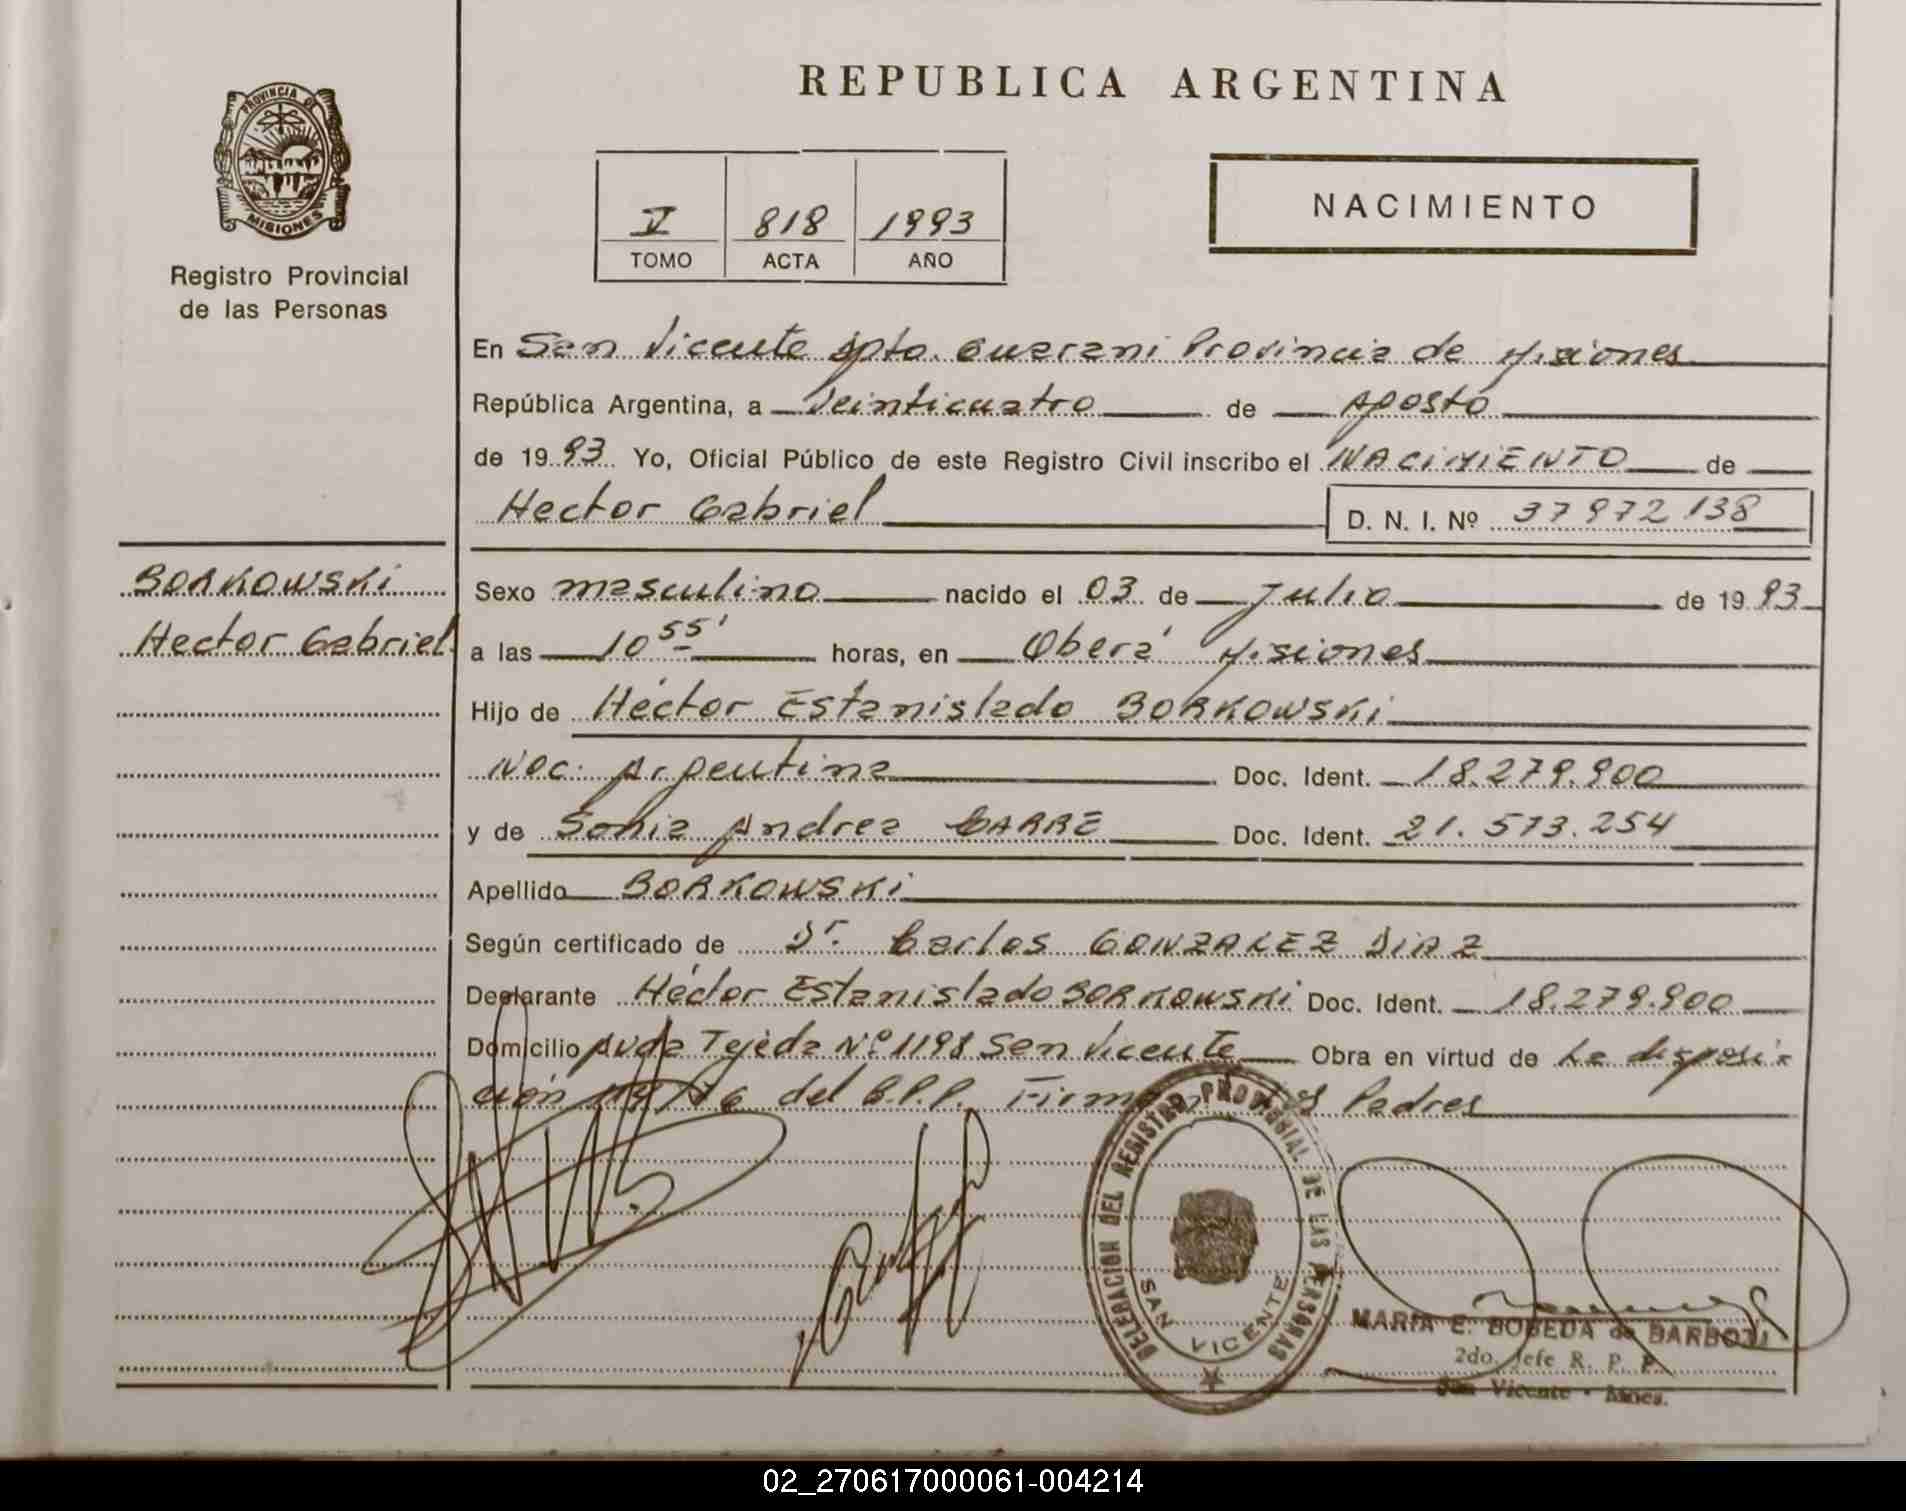 PROVINCIA DE
MISIONES
Registro Provincial
de las Personas
REPUBLICA ARGENTINA
V 818 1993
TOMO ACTA AÑO
NACIMIENTO
En San Vicente Dpto. Guarani Provincia de Misiones
República Argentina, a Veinticuatro de Agosto
de 1993 Yo, Oficial Público de este Registro Civil inscribo el NACIMIENTO de
Hector Gabriel D. N. I. Nº 37972138
BORKOWSKi
Hector Gabriel
Sexo masculino nacido el 03 de Julio de 1993
a las 10 55' horas, en Oberá Misiones
Hijo de Héctor Estanislado BORKOWSKi
Nac. Argentina Doc. Ident. 18.279.900
y de Sonia Andrea CARRE Doc. Ident. 21.573.254
Apellido BORKOWSKi
Según certificado de Dr. Carlos GONZALEZ DIAZ
Declarante Héctor Estanislado BORKOWSKi Doc. Ident. 18.279.900
Domicilio Avda Tejeda Nº 1198 San Vicente Obra en virtud de La disposi-
ción del R.P.P. Firman los Padres
DELEGACION DEL REGISTRO PROVINCIAL DE LAS PERSONAS
SAN VICENTE
MARIA E. BOBEDA de
2do. Jefe R. P. P.
San Vicente - Mnes.
02_270617000061-004214